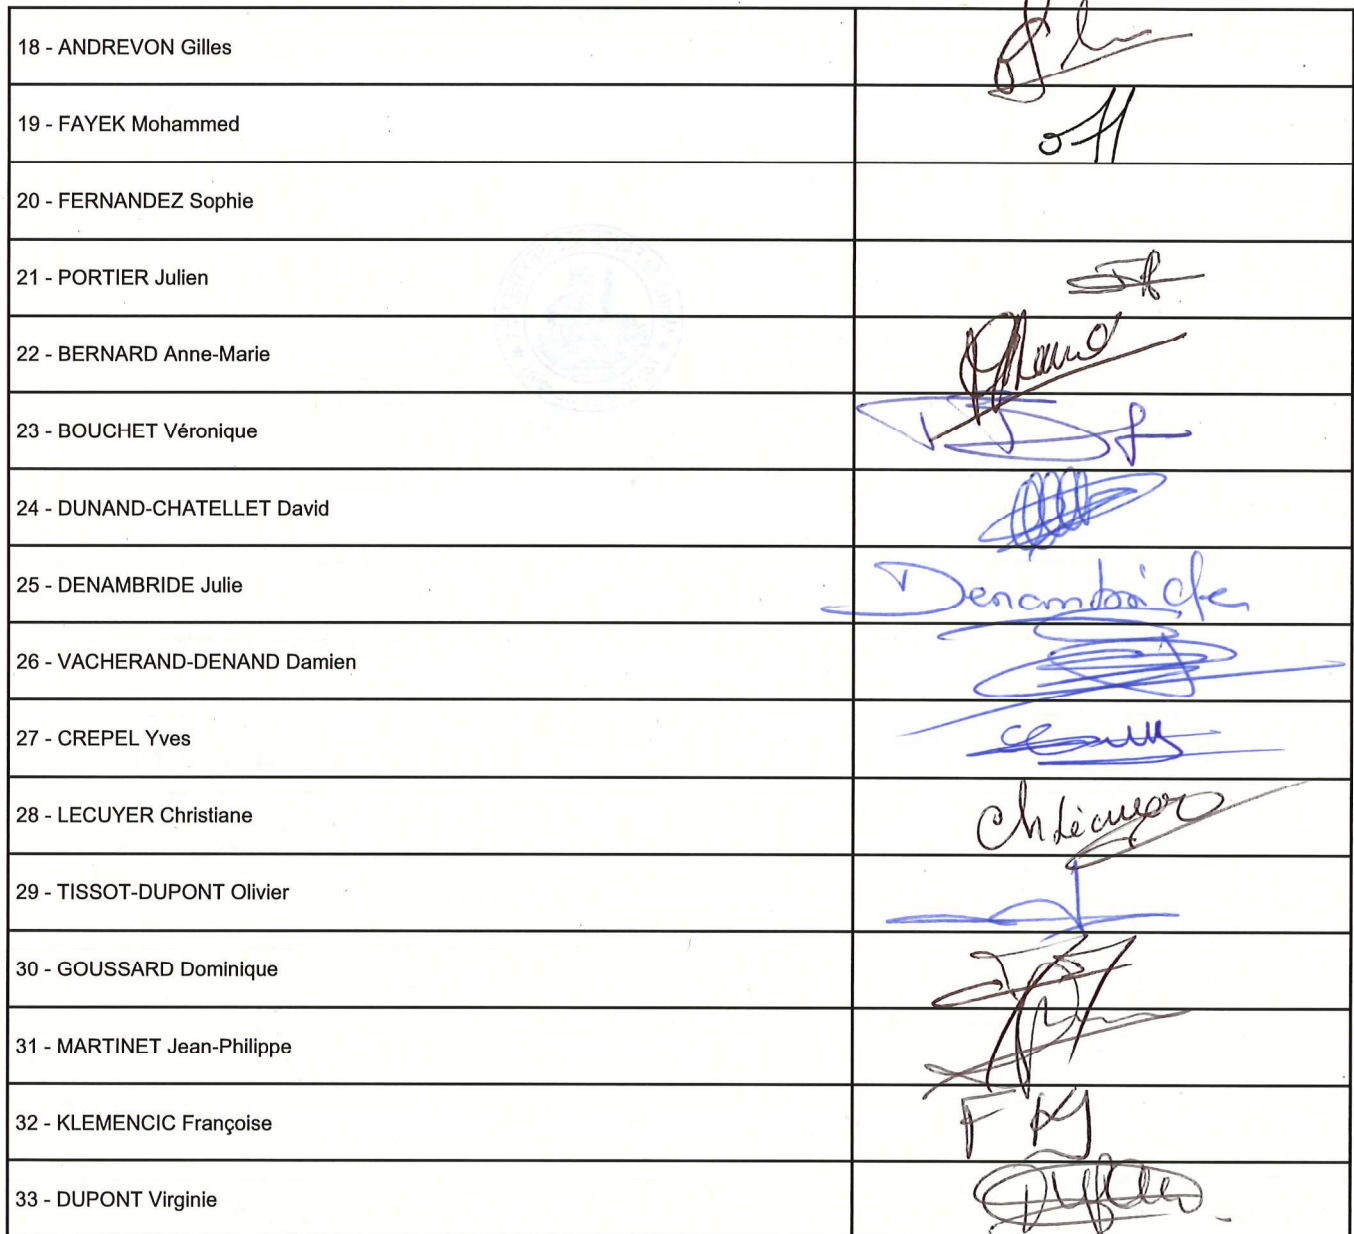 18 - ANDREVON Gilles
19 - FAYEK Mohammed
20 - FERNANDEZ Sophie
21 - PORTIER Julien
22 - BERNARD Anne-Marie
23 - BOUCHET Véronique
24 - DUNAND-CHATELLET David
25 - DENAMBRIDE Julie
Denambride
26 - VACHERAND-DENAND Damien
27 - CREPEL Yves
28 - LECUYER Christiane
Ch Lécuyer
29 - TISSOT-DUPONT Olivier
30 - GOUSSARD Dominique
31 - MARTINET Jean-Philippe
32 - KLEMENCIC Françoise
33 - DUPONT Virginie